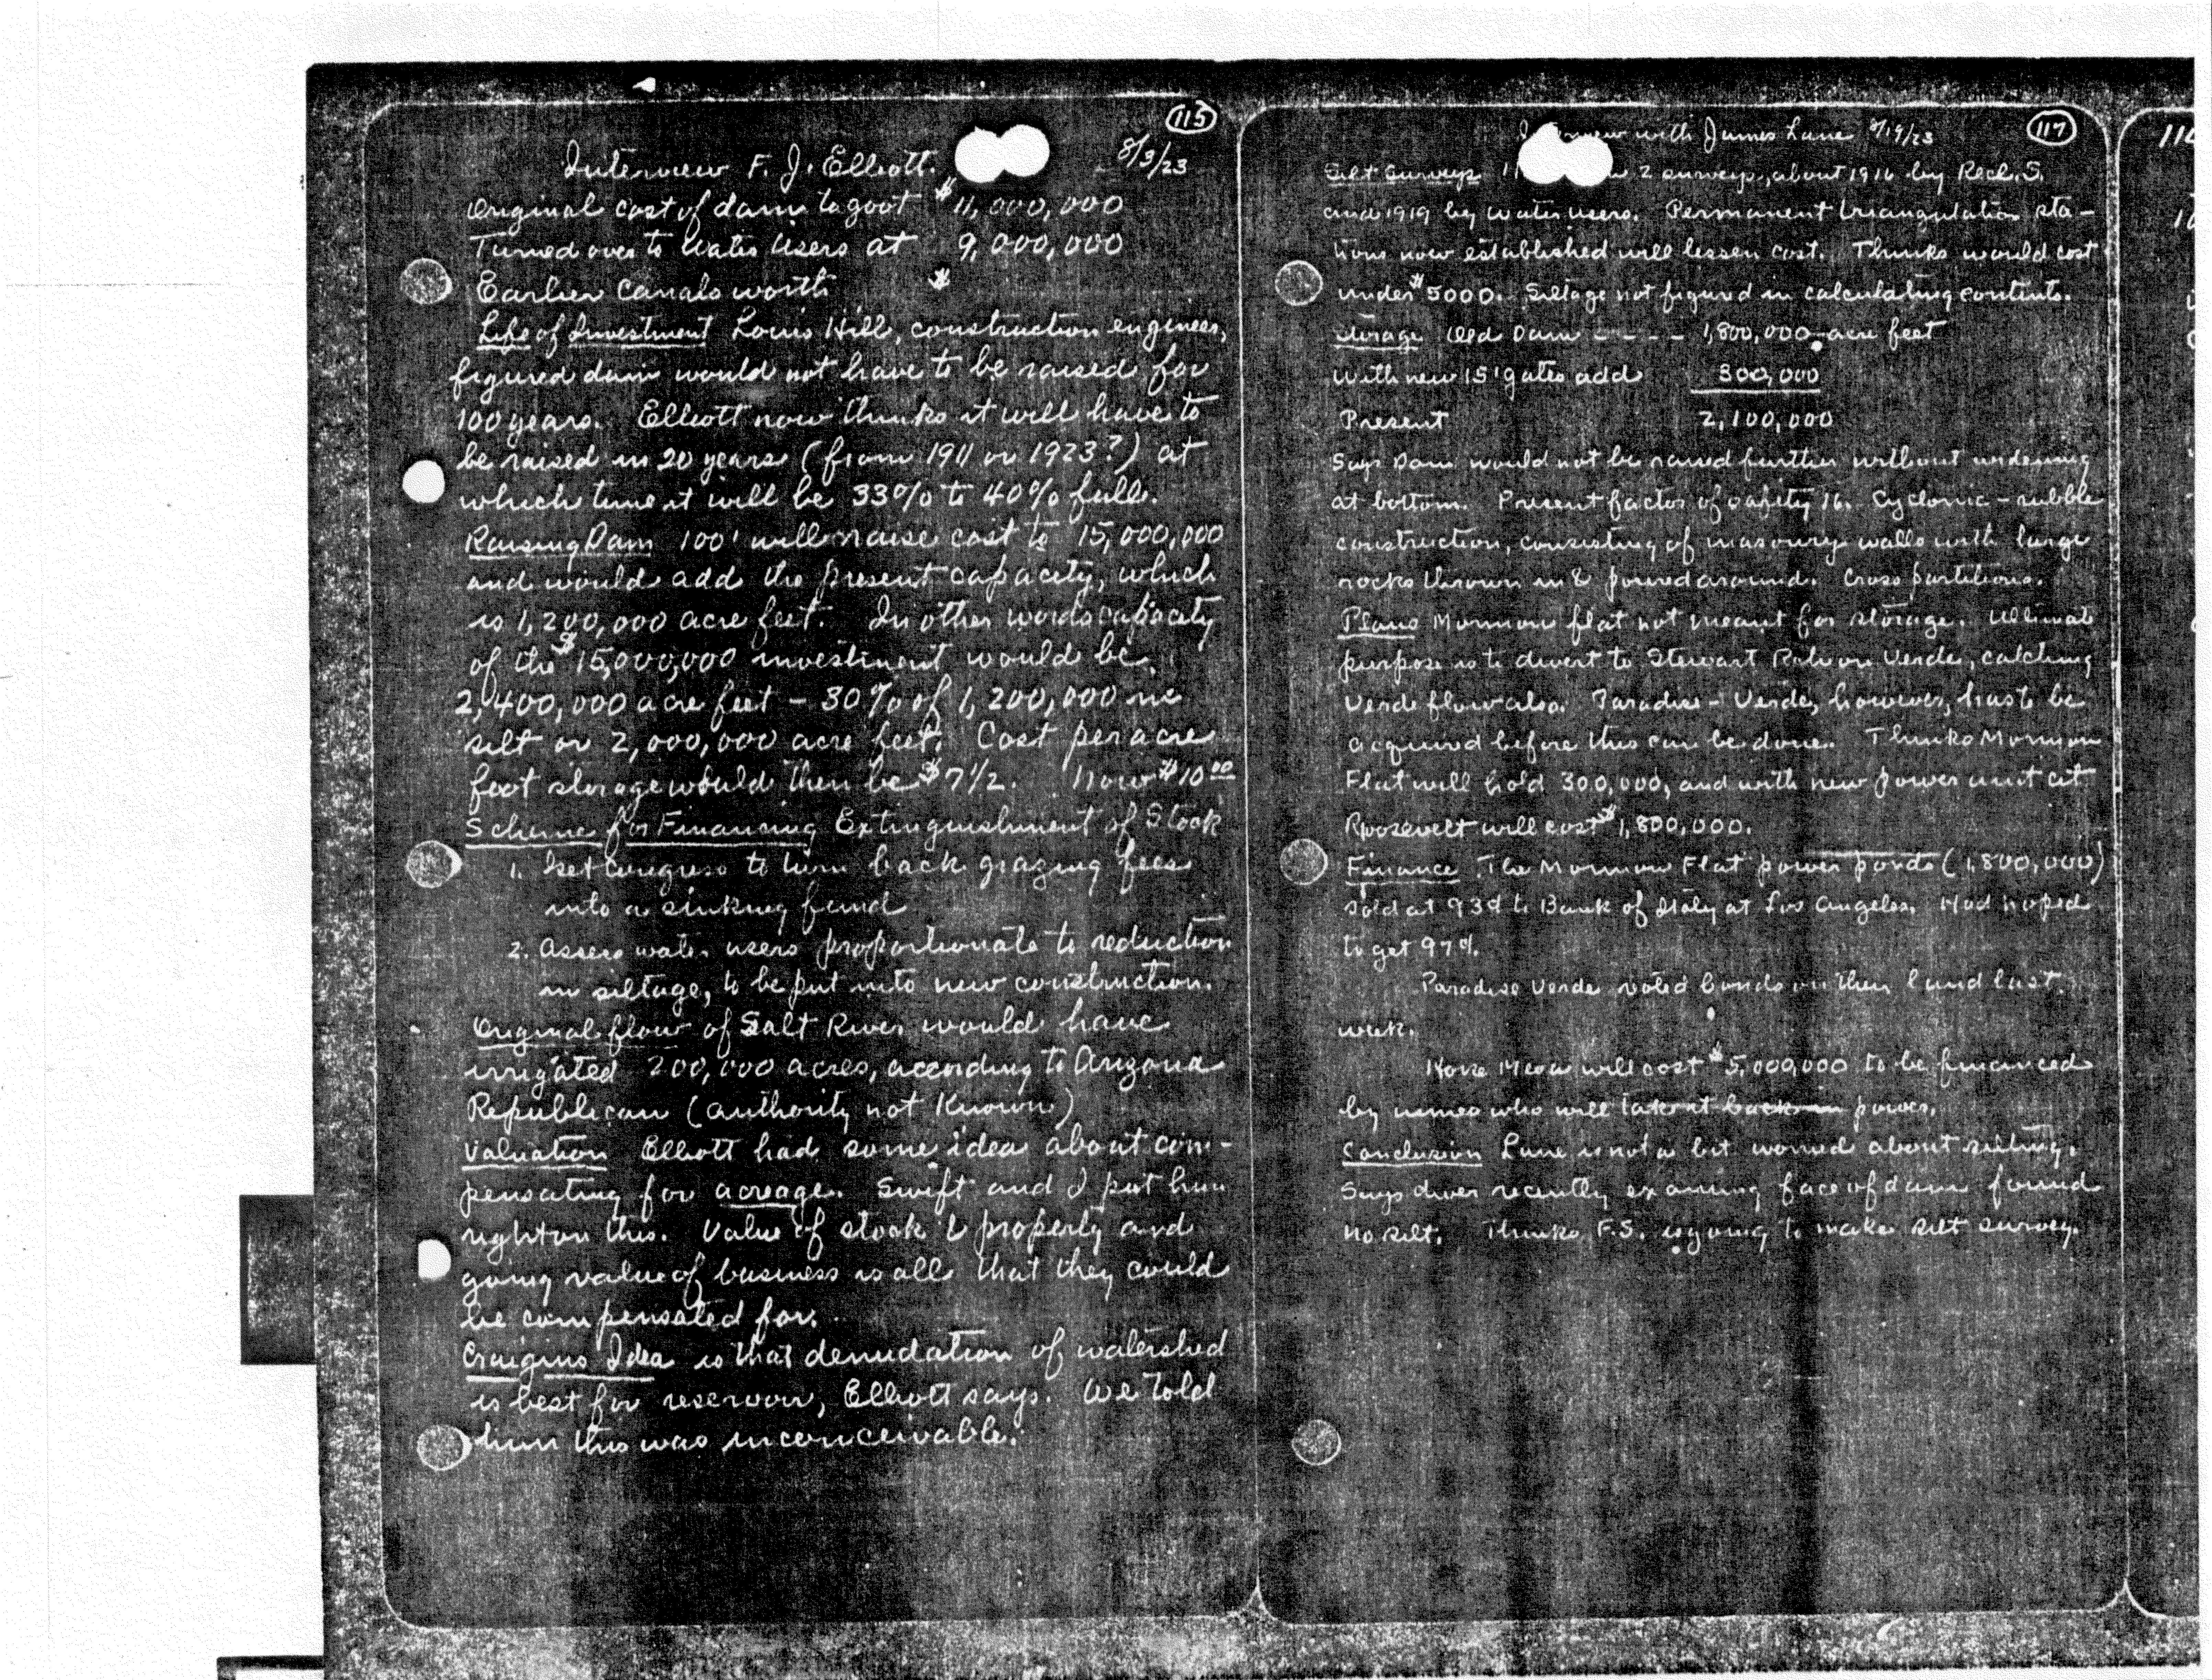 115
Interview F. J. Elliott. 8/3/23
Original cost of dam to govt $11,000,000
Turned over to Water Users at 9,000,000
Earlier Canals worth $
Life of Investment Louis Hill, construction engineer,
figured dam would not have to be raised for
100 years. Elliott now thinks it will have to
be raised in 20 years (from 1911 or 1923?) at
which time it will be 33% to 40% full.
Raising Dam 100' will raise cost to 15,000,000
and would add the present capacity, which
is 1,200,000 acre feet. In other words capacity
of the $15,000,000 investment would be
2,400,000 acre feet – 30% of 1,200,000 in
silt or 2,000,000 acre feet. Cost per acre
foot storage would then be $7 1/2. Now $10 00
Scheme for Financing Extinguishment of Stock
1. Get Congress to turn back grazing fees
into a sinking fund
2. Assess water users proportionate to reduction
in siltage, to be put into new construction.
Original flow of Salt River would have
irrigated 200,000 acres, according to Arizona
Republican (authority not known)
Valuation Elliott had some idea about com-
pensating for acreage. Swift and I put him
right on this. Value of stock & property and
going value of business is all that they could
be compensated for.
Craigins Idea is that denudation of watershed
is best for reservoir, Elliott says. We told
him this was inconceivable.
117
Interview with James Lane 8/19/23
Silt Surveys 2 surveys, about 1916 by Recl. S.
and 1919 by water users. Permanent triangulation sta-
tions now established will lessen cost. Thinks would cost
under $5000. Siltage not figured in calculating contents.
Storage Old Dam - - - - 1,800,000 acre feet
With new 15' gates add 300,000
Present 2,100,000
Says Dam would not be raised further without widening
at bottom. Present factor of safety 16. Cyclonic – rubble
construction, consisting of masonry walls with large
rocks thrown in & poured around. Cross partitions.
Plans Mormon flat not meant for storage. Ultimate
purpose is to divert to Stewart on Verde, catching
Verde flow also. Paradise - Verde, however, has to be
acquired before this can be done. Thinks Mormon
Flat will hold 300,000, and with new power unit at
Roosevelt will cost $1,800,000.
Finance The Mormon Flat power (1,800,000)
sold at 93¢ to Bank of Italy at Los Angeles. Had hoped
to get 97¢.
Paradise Verde voted bonds on their land last
week.
Horse Mesa will cost $5,000,000 to be financed
by who will take it back in power.
Conclusion Lane is not a bit worried about silting.
Says diver recently examining face of dam found
no silt. Thinks F.S. is going to make silt survey.